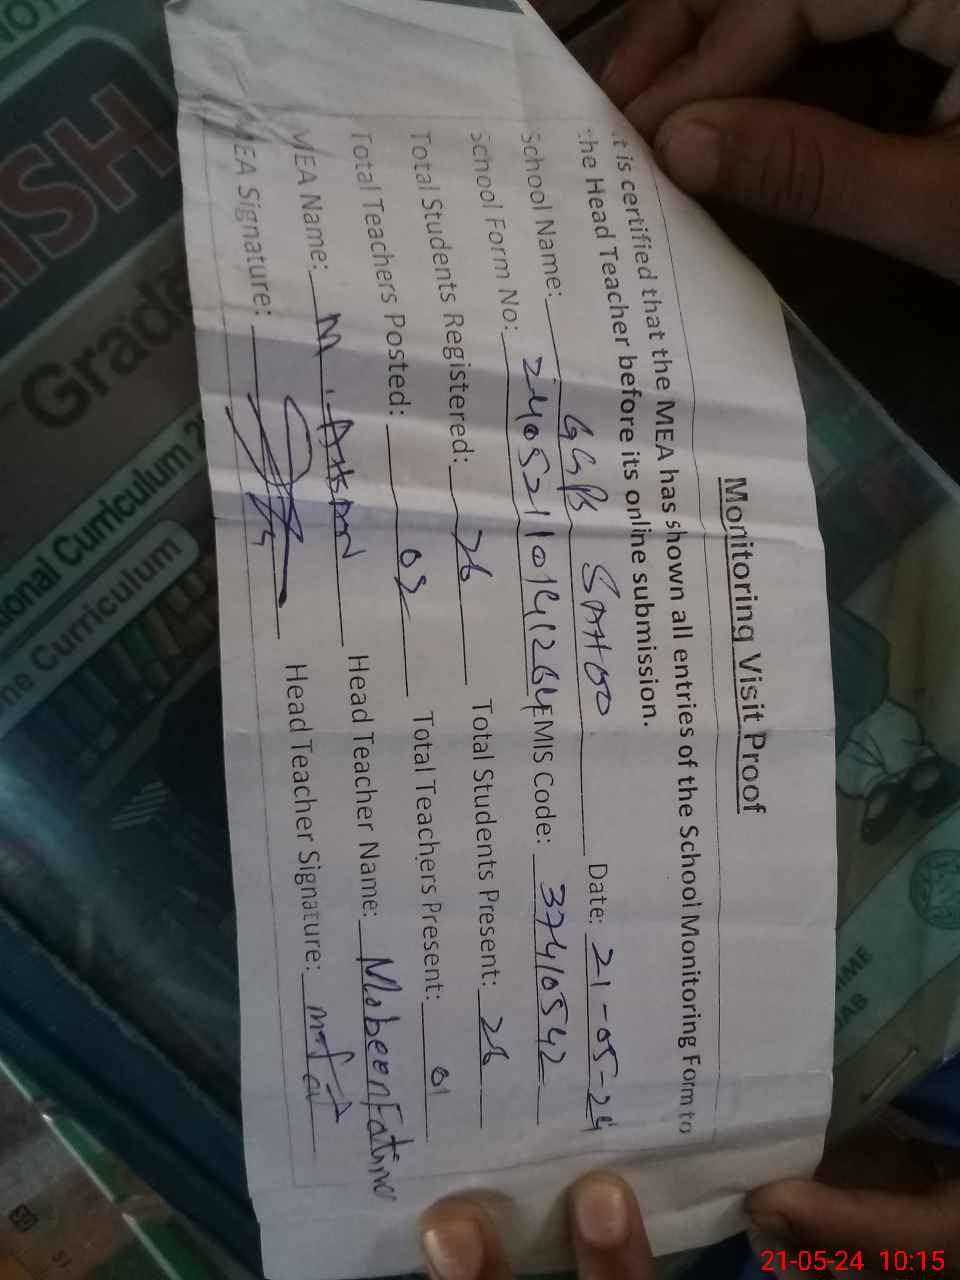 Monitoring Visit Proof
It is certified that the MEA has shown all entries of the School Monitoring Form to
the Head Teacher before its online submission.
School Name: GGPS SAHOO Date: 21-05-24
School Form No: 24052110141264 EMIS Code: 37410542
Total Students Registered: 26 Total Students Present: 26
Total Teachers Posted: 02 Total Teachers Present: 01
MEA Name: M. AHSAN Head Teacher Name: Mobeen Fatima
MEA Signature: Head Teacher Signature:
ISH
Grade
ional Curriculum 2
ne Curriculum
21-05-24 10:15